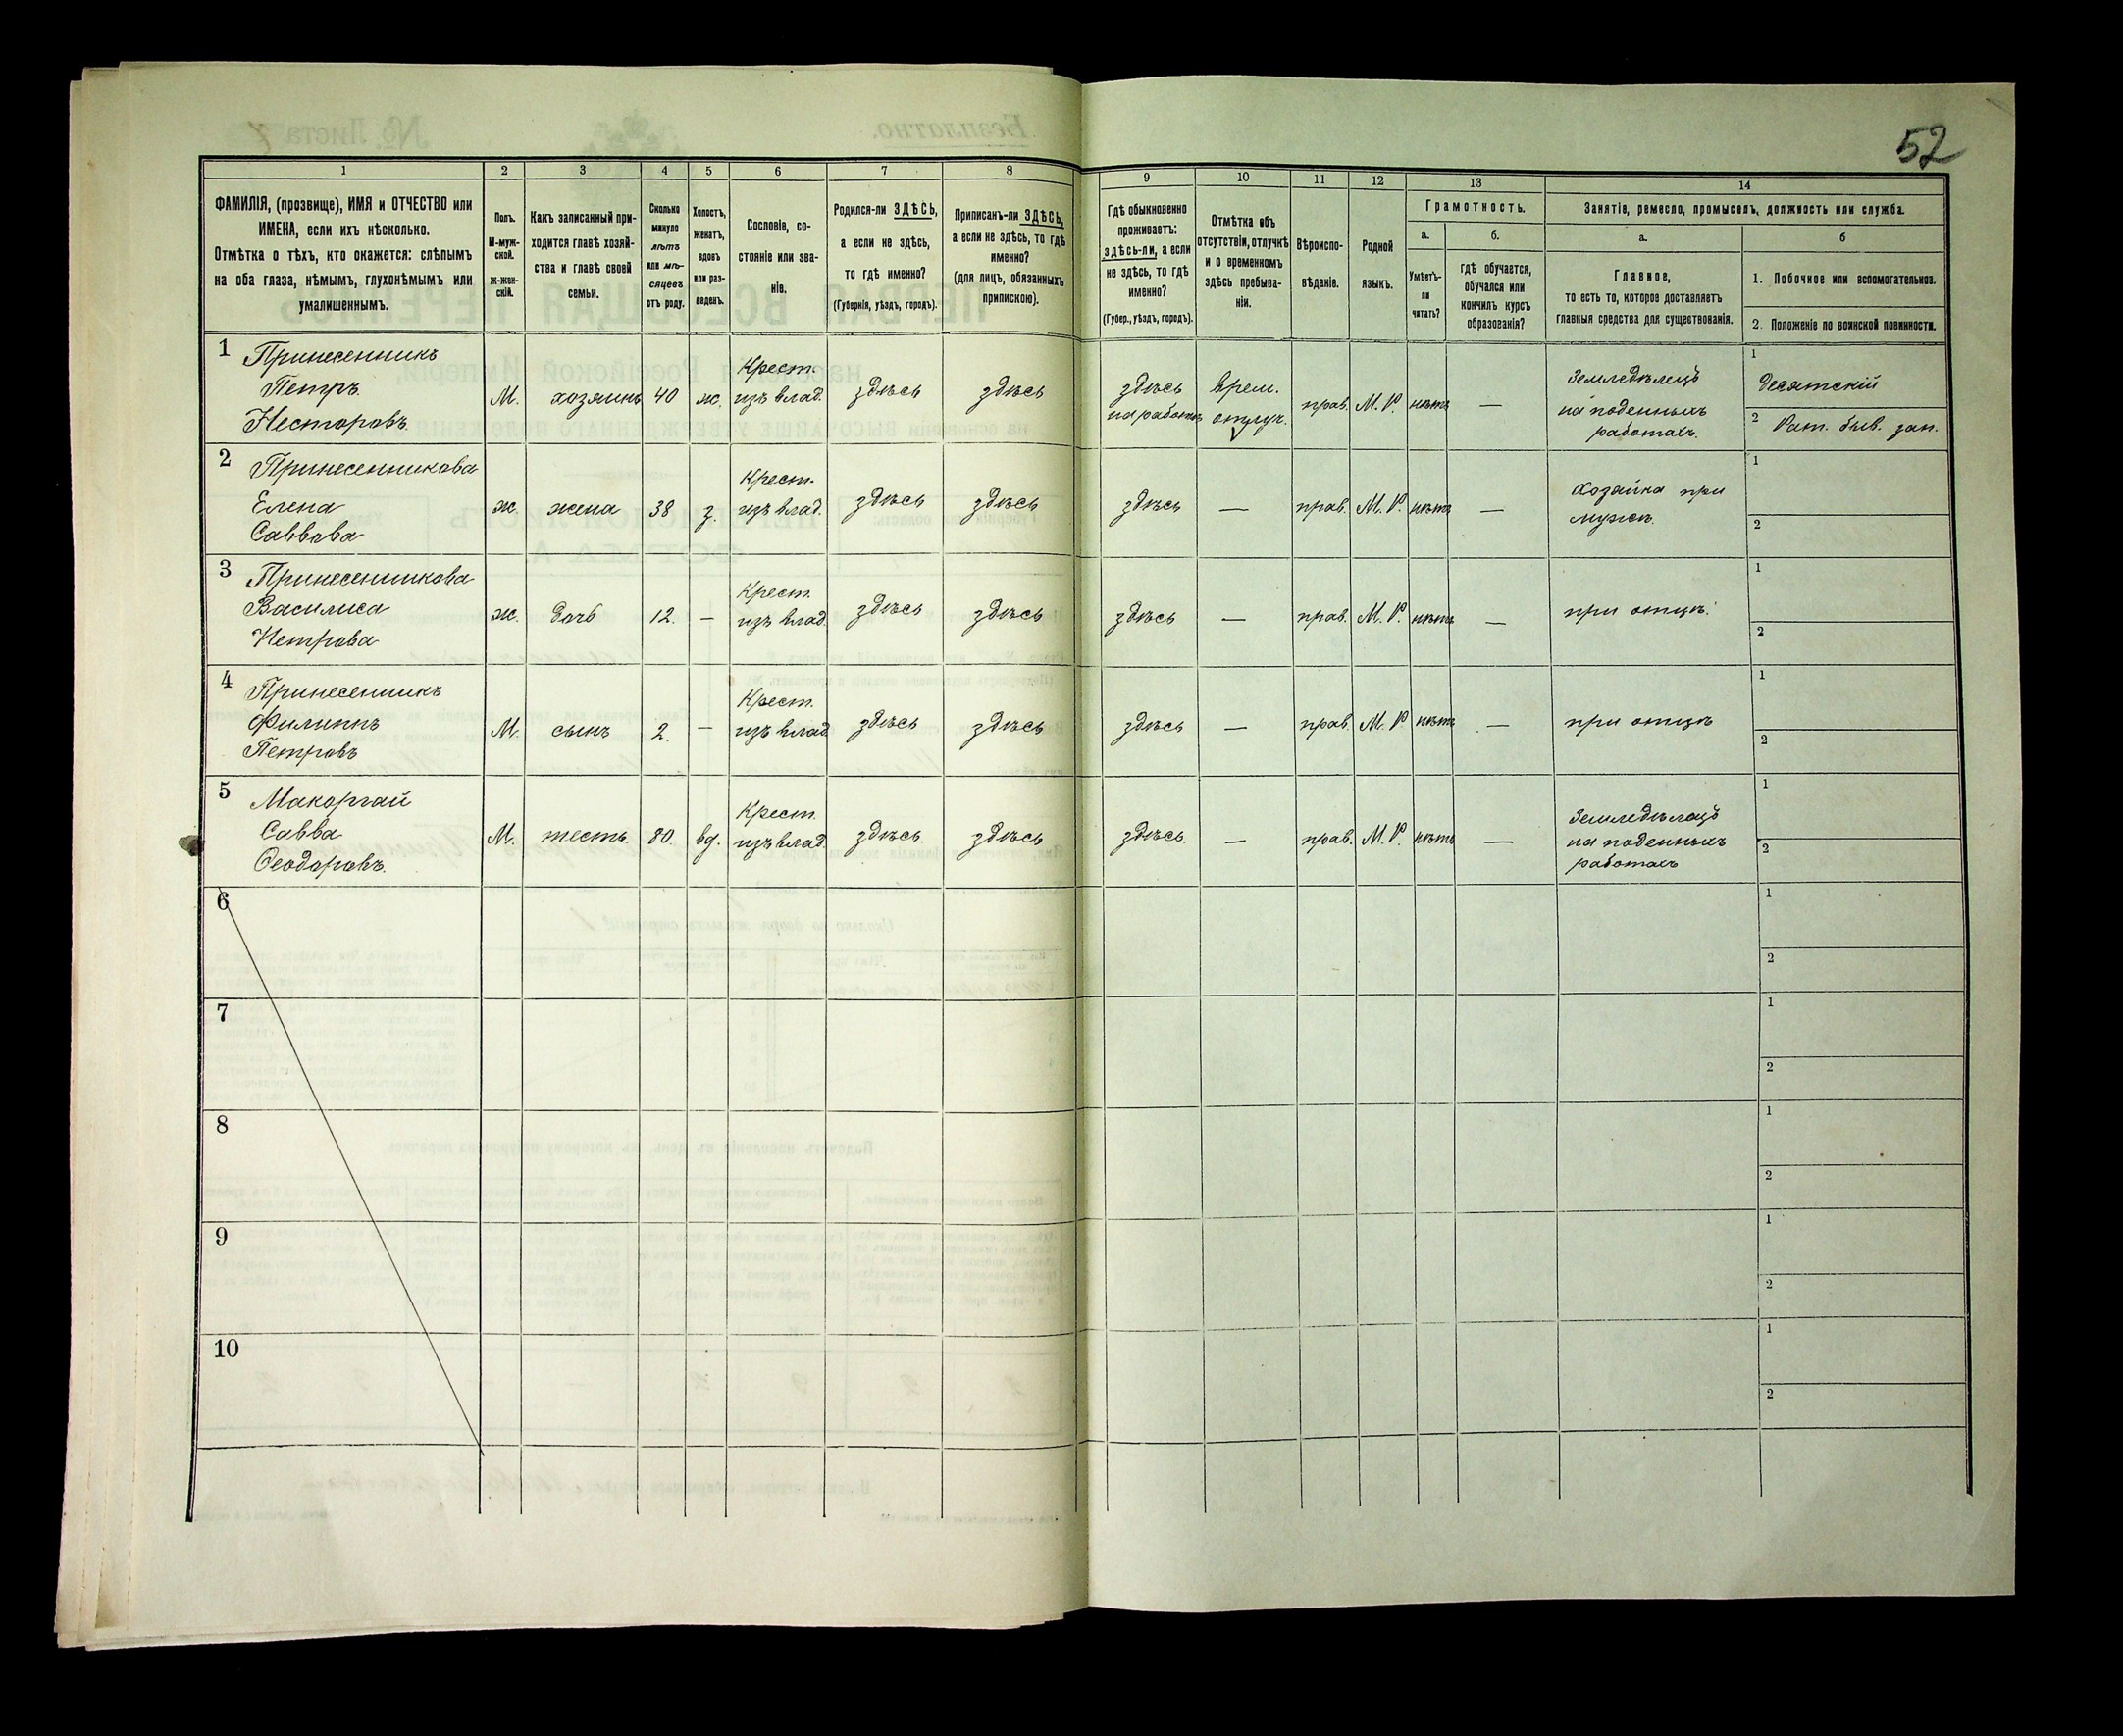 52
1 2 3 4 5 6 7 8 9 10 11 12 13 14
ФАМИЛІЯ, (прозвище), ИМЯ и ОТЧЕСТВО или
ИМЕНА, если ихъ нѣсколько.
Отмѣтка о тѣхъ, кто окажется: слѣпымъ
на оба глаза, нѣмымъ, глухонѣмымъ или
умалишеннымъ.
Полъ.
М-муж-
ской.
ж-жен-
скій.
Какъ записанный при-
ходится главѣ хозяй-
ства и главѣ своей
семьи.
Сколько
минуло
лѣтъ
или мѣ-
сяцевъ
отъ роду.
Холостъ,
женатъ,
вдовъ
или раз-
веденъ.
Сословіе, со-
стояніе или зва-
ніе.
Родился-ли ЗДѢСЬ,
а если не здѣсь,
то гдѣ именно?
(Губернія, уѣздъ, городъ).
Приписанъ-ли ЗДѢСЬ,
а если не здѣсь, то гдѣ
именно?
(для лицъ, обязанныхъ
припискою).
Гдѣ обыкновенно
проживаетъ:
здѣсь-ли, а если
не здѣсь, то гдѣ
именно?
(Губер., уѣздъ, городъ).
Отмѣтка объ
отсутствіи, отлучкѣ
и о временномъ
здѣсь пребыва-
ніи.
Вѣроиспо-
вѣданіе.
Родной
языкъ.
Грамотность.
а.
Умѣетъ-
ли
читать?
б.
гдѣ обучается,
обучался или
кончилъ курсъ
образованія?
Занятіе, ремесло, промыселъ, должность или служба.
а.
Главное,
то есть то, которое доставляетъ
главныя средства для существованія.
б
1. Побочное или вспомогательное.
2. Положеніе по воинской повинности.
1 Принесенникъ
Петръ
Несторовъ.
М. хозяинъ 40 ж.
Крест.
изъ влад.
здѣсь здѣсь
здѣсь
на работѣ
врем.
отлуч.
прав. М. Р. нѣтъ —
Земледѣлецъ
на поденныхъ
работахъ.
1 десятскій
2 Рат. быв. зап.
2 Принесенникова
Елена
Саввова
ж. жена 38 з.
Крест.
изъ влад.
здѣсь здѣсь здѣсь — прав. М. Р. нѣтъ —
Хозяйка при
мужѣ.
1
2
3 Принесенникова
Василиса
Петрова
ж. дочь 12. —
Крест.
изъ влад.
здѣсь здѣсь здѣсь — прав. М. Р. нѣтъ —
при отцѣ.
1
2
4 Принесенникъ
Филиппъ
Петровъ
М. сынъ 2. —
Крест.
изъ влад.
здѣсь здѣсь здѣсь — прав. М. Р. нѣтъ —
при отцѣ
1
2
5 Макоргай
Савва
Ѳеодоровъ.
М. тесть. 80. вд.
Крест.
изъ влад.
здѣсь. здѣсь здѣсь. — прав. М. Р. нѣтъ —
Земледѣлецъ
на поденныхъ
работахъ
1
2
6
1
2
7
1
2
8
1
2
9
1
2
10
1
2